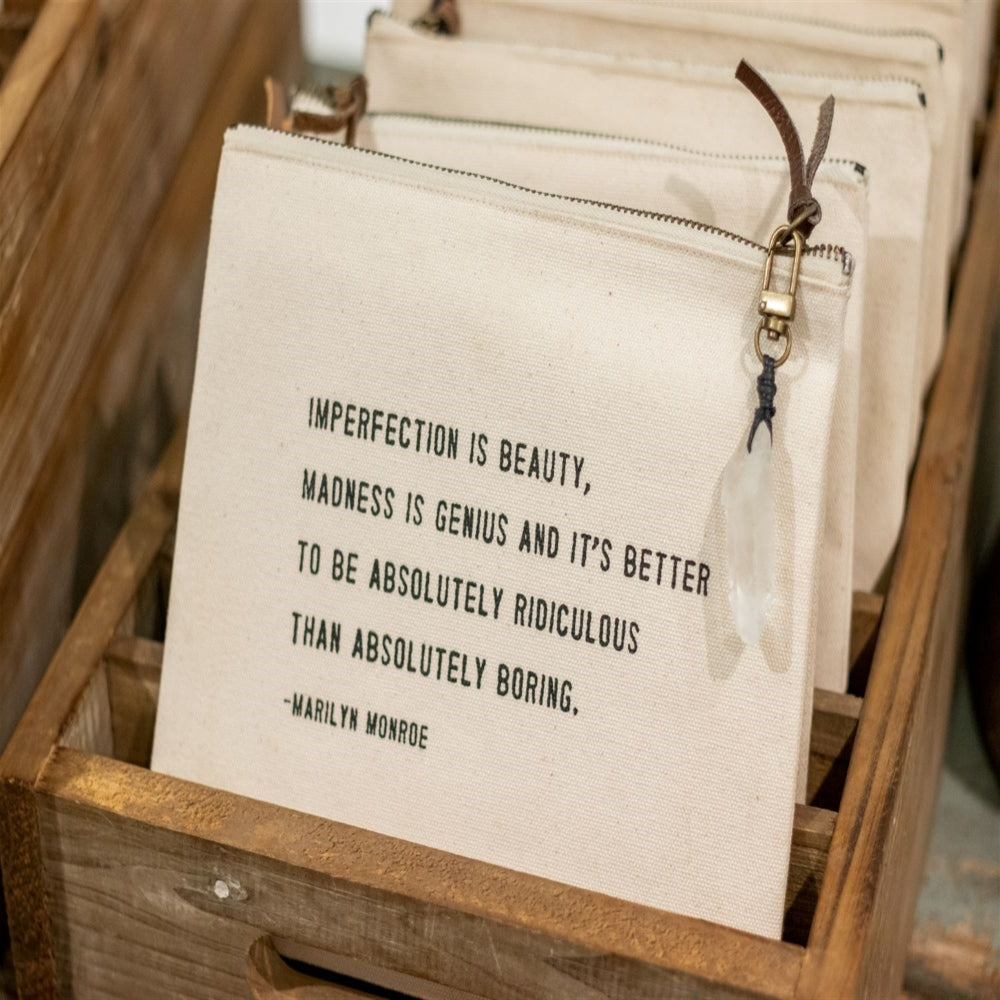 IMPERFECTION IS BEAUTY,
MADNESS IS GENIUS AND IT'S BETTER
TO BE ABSOLUTELY RIDICULOUS
THAN ABSOLUTELY BORING.
-MARILYN MONROE